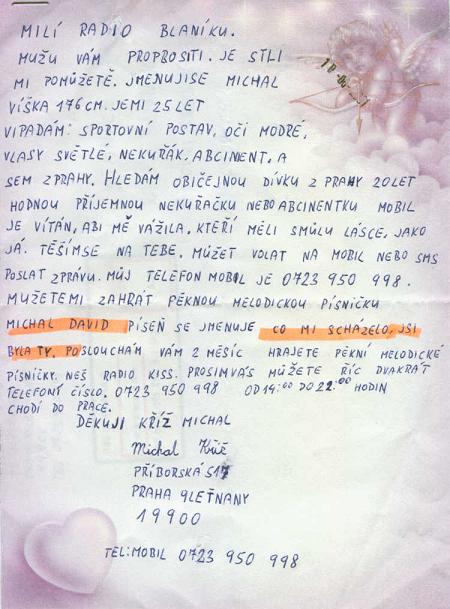 MILÍ RADIO BLANÍKU.
MUŽU VÁM PROPROSITI. JE STLI
MI POMŮŽETĚ. JMENUJISE MICHAL
VÍŠKA 176 CM. JEMI 25 LET
VIPADÁM: SPORTOVNÍ POSTAV, OČI MODRÉ,
VLASY SVĚTLÉ, NEKUŘÁK, ABCINENT, A
SEM Z PRAHY. HLEDÁM OBIČEJNOU DÍVKU Z PRAHY 20 LET
HODNOU PŘÍJEMNOU NEKUŘAČKU NEBO ABCINENTKU MOBIL
JE VÍTÁN, ABI MĚ VÁŽILA. KTEŘÍ MĚLI SMŮLU LÁSCE, JAKO
JÁ. TĚŠÍMSE NA TEBE. MŮŽET VOLAT NA MOBIL NEBO SMS
POSLAT ZPRÁVU. MŮJ TELEFON MOBIL JE 0723 950 998.
MUŽETEMI ZAHRÁT PĚKNOU MELODICKOU PÍSNIČKU
MICHAL DAVID PÍSEŇ SE JMENUJE CO MI SCHÁZELO, JSI
BYLA TY. POSLOUCHÁM VÁM 2 MĚSÍC HRAJETE PĚKNÍ MELODICKÉ
PÍSNIČKY. NEŠ RADIO KISS. PROSIMVÁS MŮŽETE ŘÍC DVAKRÁT
TELEFONÍ ČÍSLO. 0723 950 998 OD 19:00 DO 22:00 HODIN
CHODÍ DO PRÁCE.
DĚKUJI KŘÍŽ MICHAL
Michal Kříž
PŘÍBORSKÁ 517
PRAHA 9 LEŤNANY
19900
TEL: MOBIL 0723 950 998